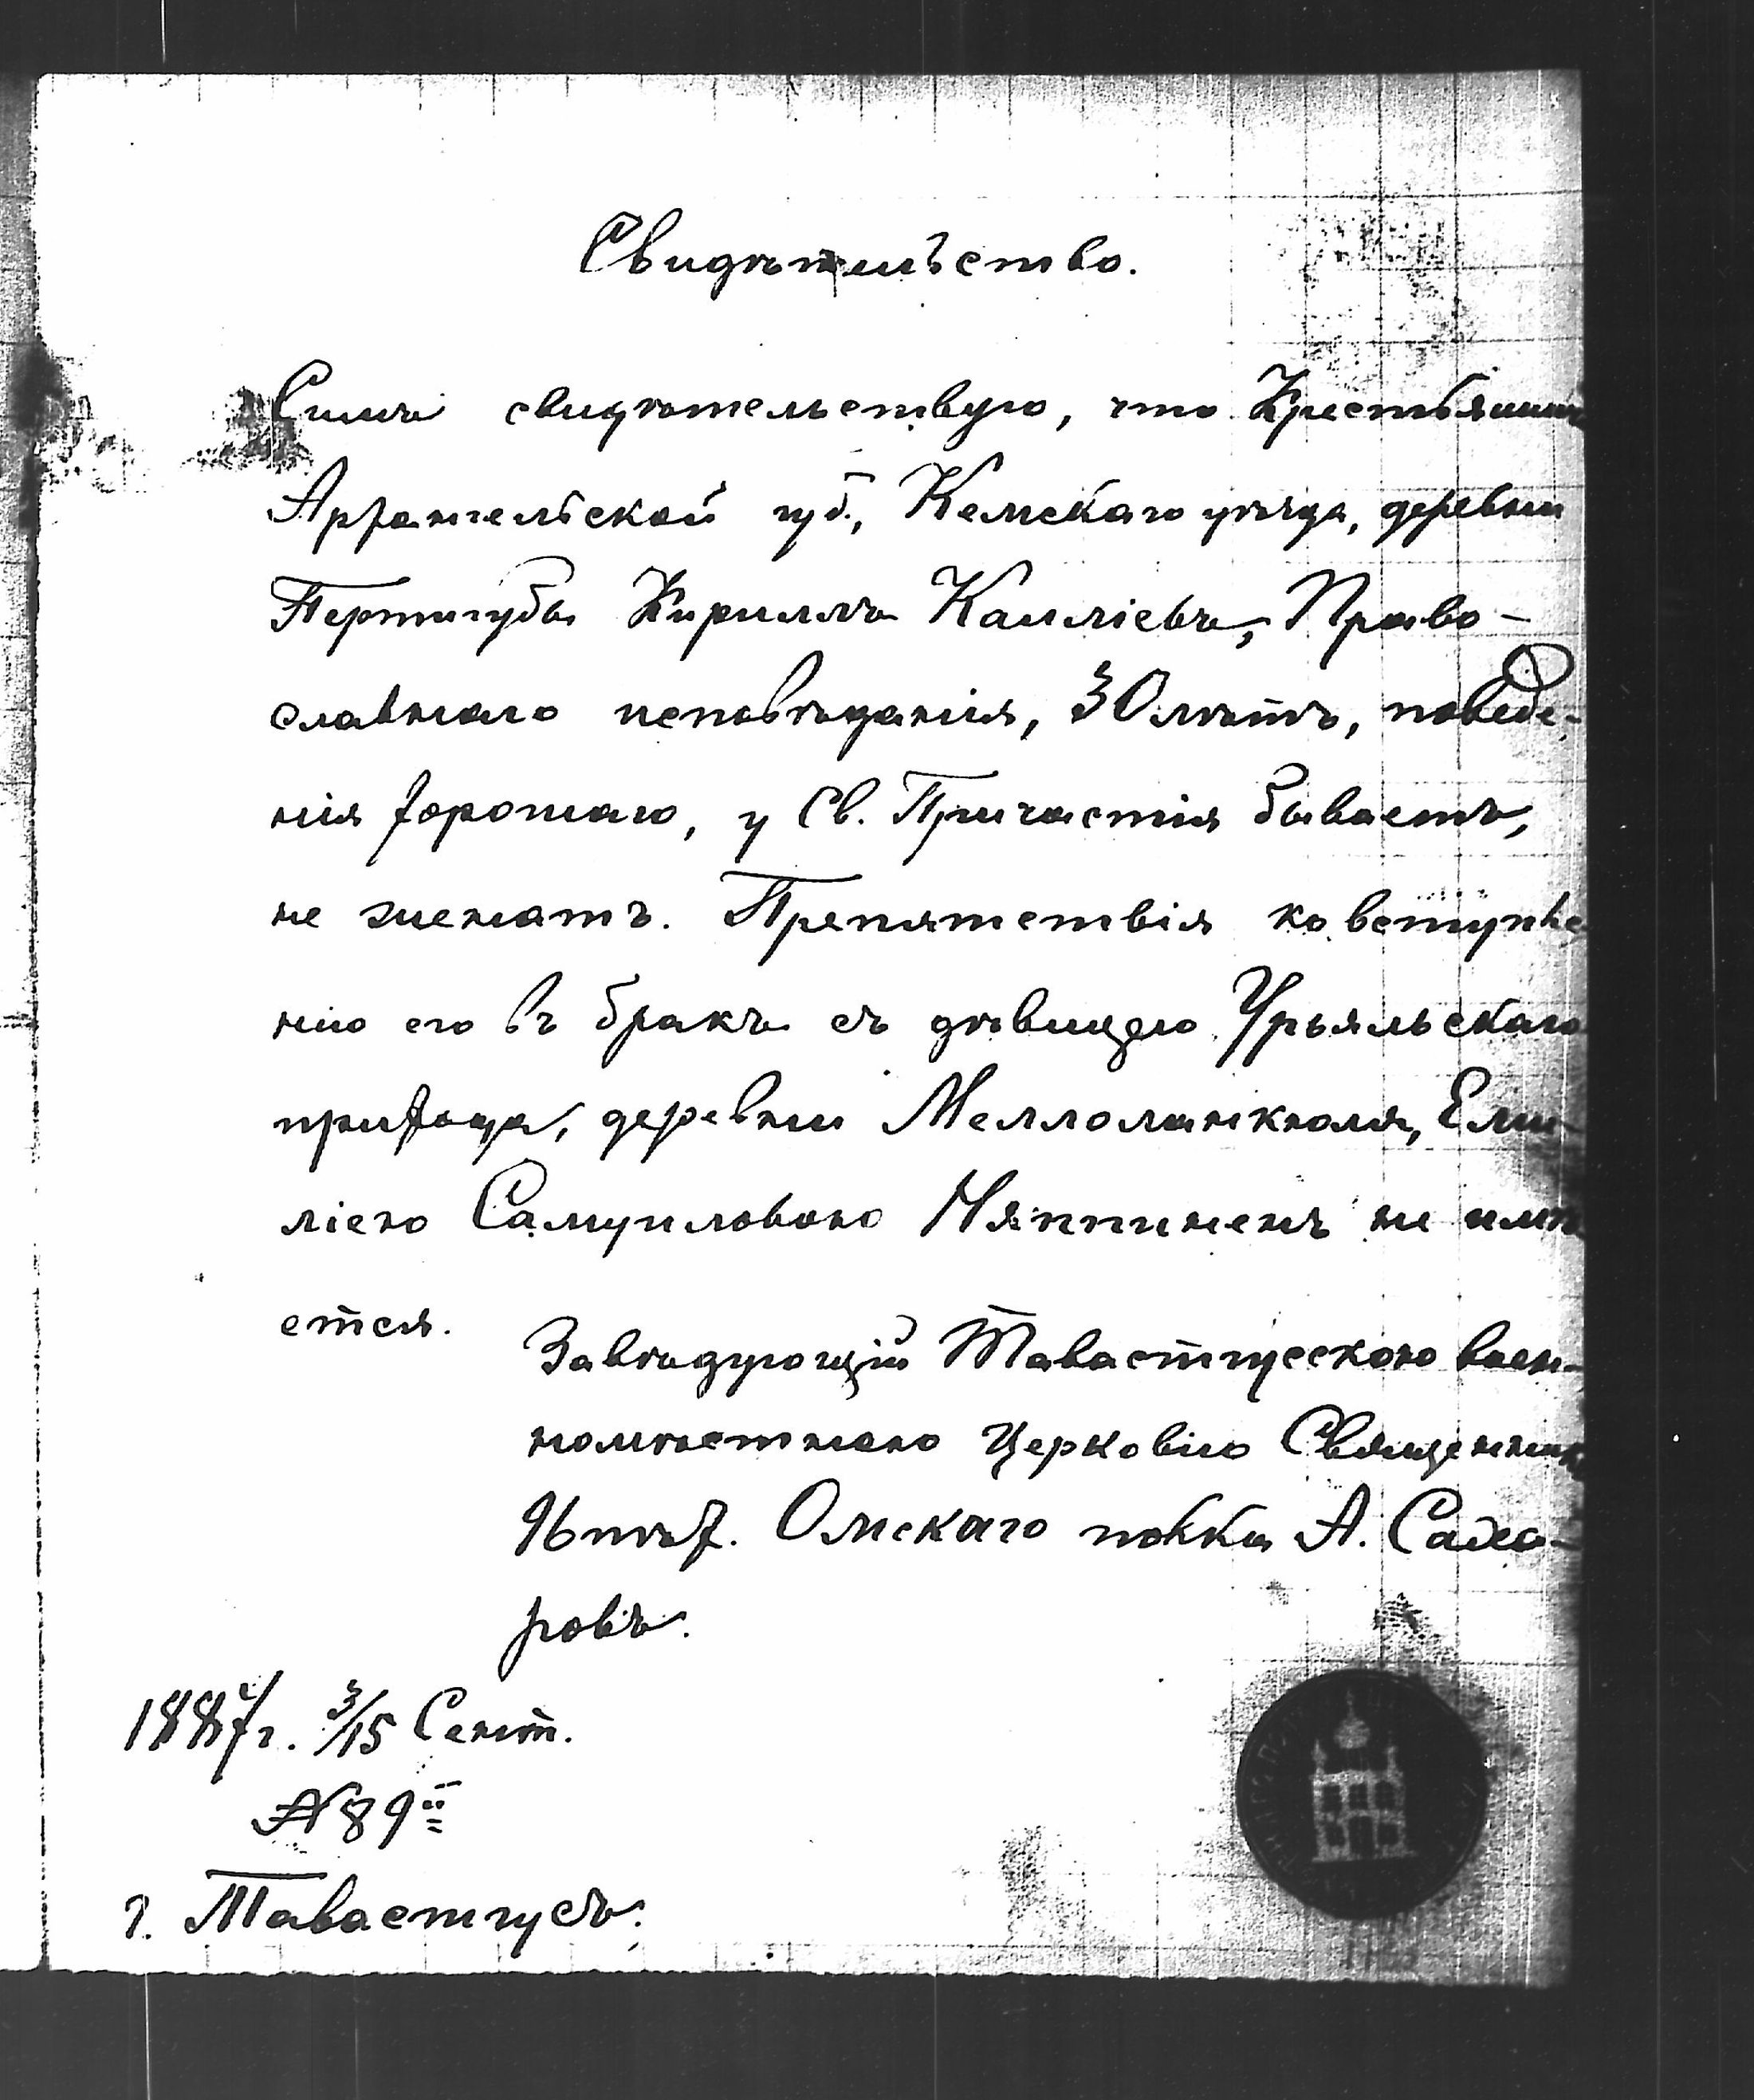 Свидѣтельство.
Симъ свидѣтельствую, что Крестьянинъ
Архангельской губ., Кемскаго уѣзда, деревни
Пертигубы Кириллъ Каллiевъ, Право-
славнаго исповѣданiя, 30 лѣтъ, поведе-
нiя хорошаго, у Св. Причастiя бываетъ,
не женатъ. Препятствiя ко вступле
нiю его въ бракъ съ дѣвицею Урьяльскаго
прихода, деревни Меллоланкюля, Еми-
лiею Самуиловою Няппиненъ не имѣ
ется.
Завѣдующiй Тавастгусскою воен-
номѣстною Церковiю Священникъ
96 пѣх. Омскаго полка А. Саха-
ровъ.
1887 г. 3/15 Сент.
№ 89
г. Тавастгусъ.